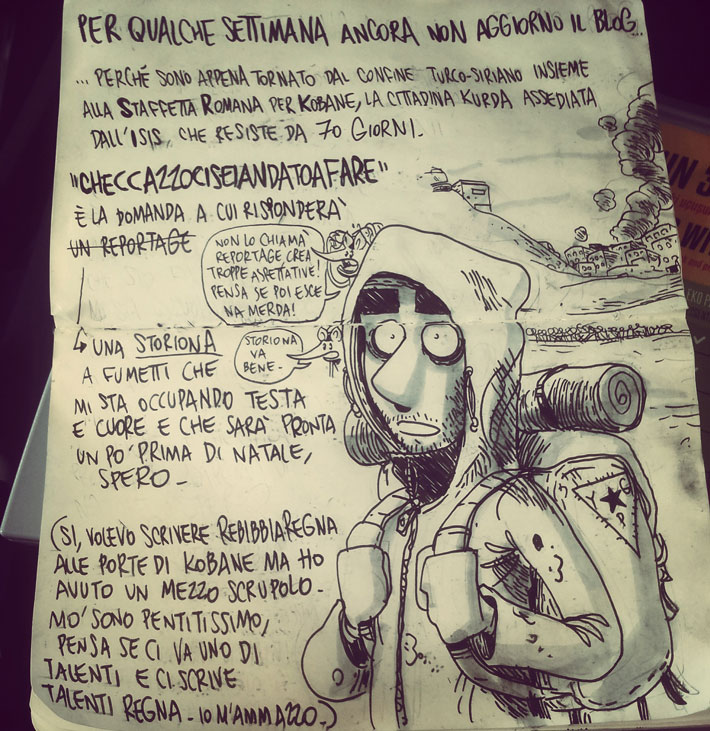 PER QUALCHE SETTIMANA ANCORA NON AGGIORNO IL BLOG...
... PERCHÉ SONO APPENA TORNATO DAL CONFINE TURCO-SIRIANO INSIEME
ALLA STAFFETTA ROMANA PER KOBANE, LA CITTADINA KURDA ASSEDIATA
DALL'ISIS, CHE RESISTE DA 70 GIORNI.
"CHECCAZZOCISEIANDATOAFARE"
È LA DOMANDA A CUI RISPONDERÀ
UN REPORTAGE
NON LO CHIAMÀ
REPORTAGE, CREA
TROPPE ASPETTATIVE!
PENSA SE POI ESCE
NA MERDA!
UNA STORIONA
A FUMETTI CHE
MI STA OCCUPANDO TESTA
E CUORE E CHE SARÀ PRONTA
UN PO' PRIMA DI NATALE,
SPERO.
STORIONA
VA
BENE.
(SI, VOLEVO SCRIVERE REBIBBIAREGNA
ALLE PORTE DI KOBANE MA HO
AVUTO UN MEZZO SCRUPOLO.
MO' SONO PENTITISSIMO,
PENSA SE CI VA UNO DI
TALENTI E CI SCRIVE
TALENTI REGNA. IO M'AMMAZZO.)
Y P G